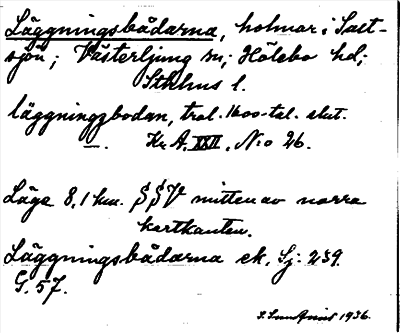 Läggningsbådarna, holmar i Salt-
sjön; Västerljung sn; Hölebo hd;
Sthlms l.
läggningzbodan, trol. 1600-tal. slut.
—. Kr. A. XXII, N:o 26.
Läge 8,1 km. SSV mitten av norra
kartkanten.
Läggningsbådarna ek. Sj: 239.
G. 57.
1936.